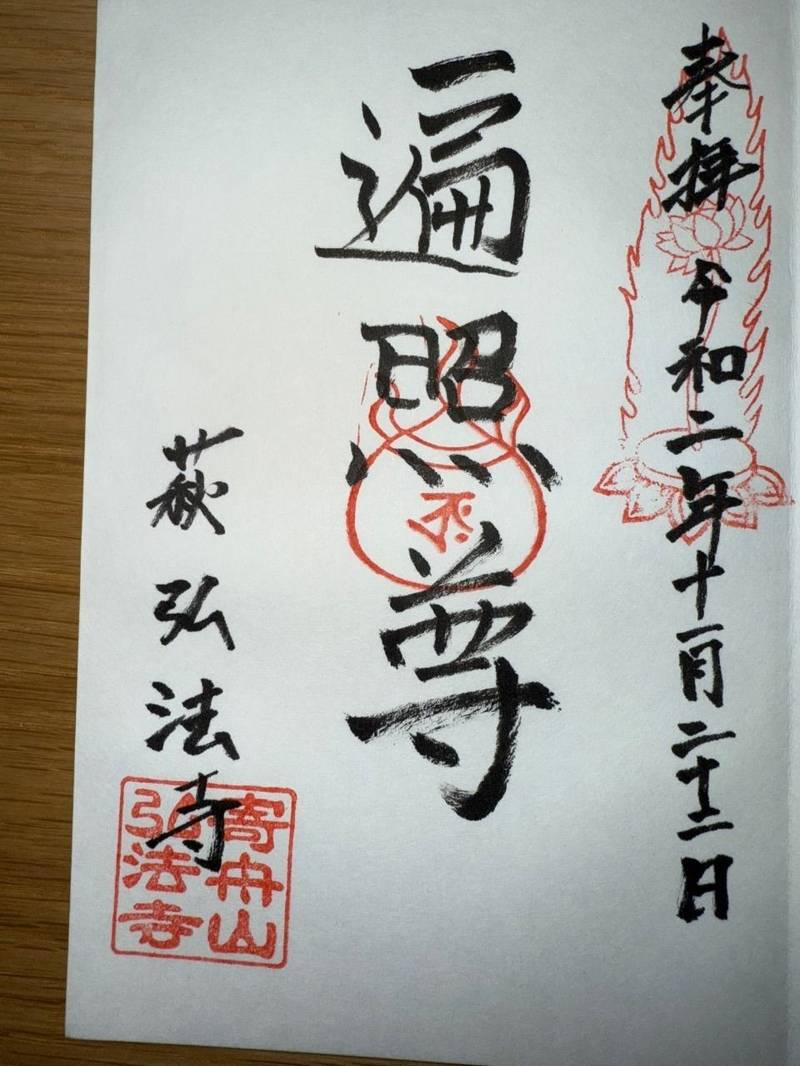 奉拝 令和二年十一月二十二日
遍照尊
萩弘法寺
寄舟山
弘法寺